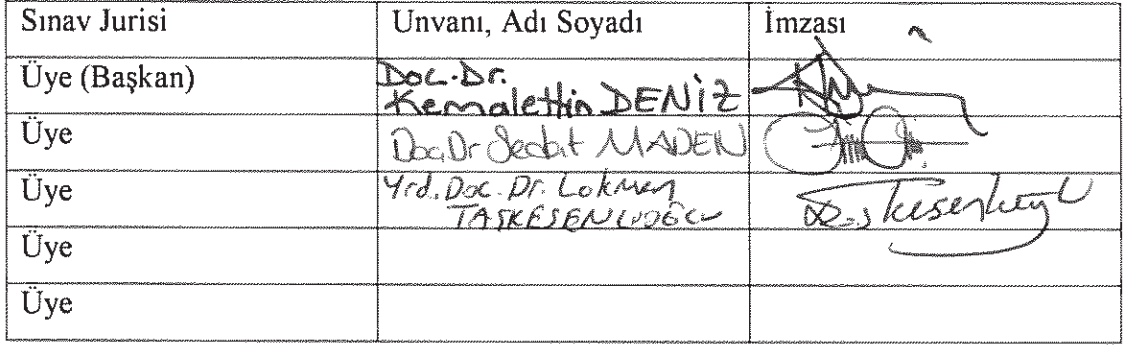 Sınav Jurisi Unvanı, Adı Soyadı İmzası
Üye (Başkan) Doc.Dr.
Kemalettin DENİZ
Üye Doc.Dr Sedat MADEN
Üye Yrd.Doc.Dr. Lokman
TAŞKESENLİOĞLU
Üye
Üye